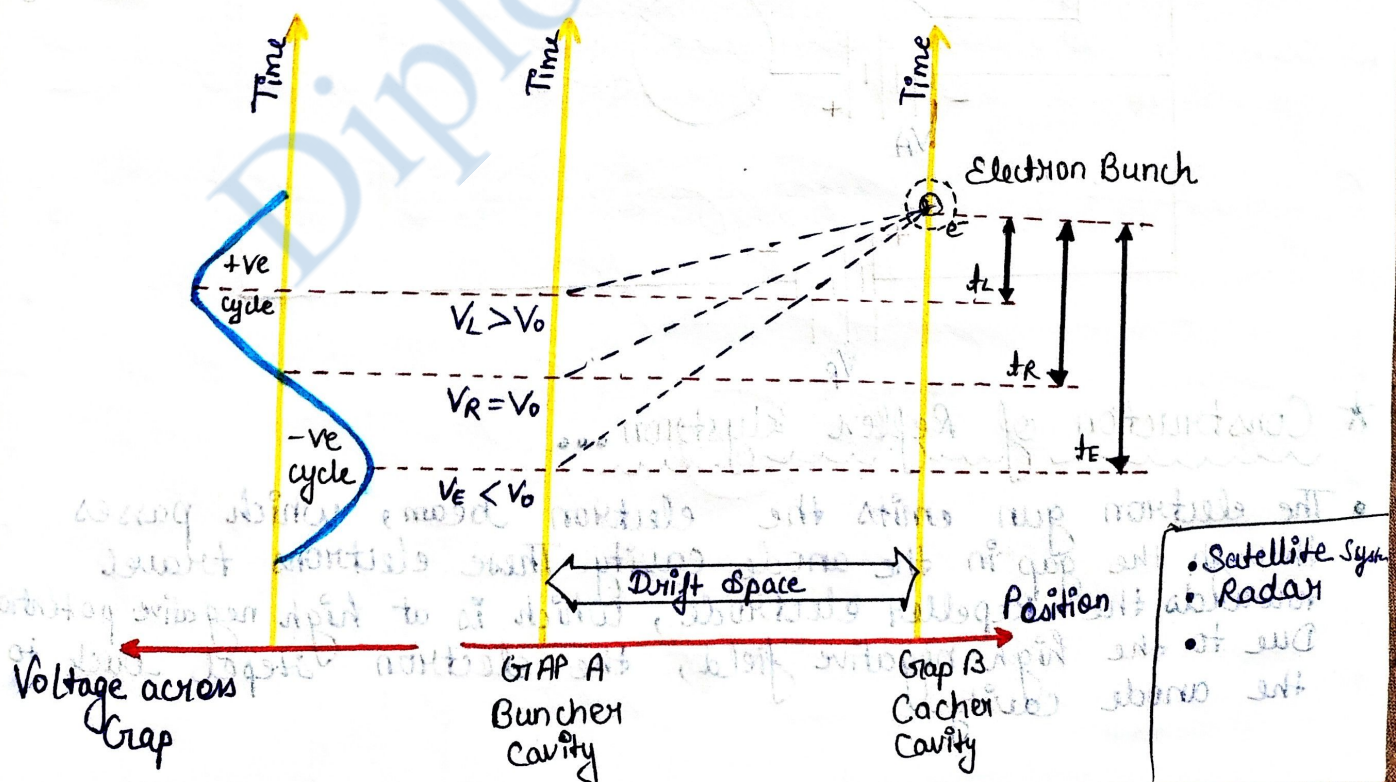 Diplo
Time
Time
Time
Electron Bunch
e⁻
+ve
cycle
V_L > V_0
t_L
V_R = V_0
t_R
-ve
cycle
V_E < V_0
t_E
Drift Space
Position
Voltage across
Gap
GAP A
Buncher
Cavity
Gap B
Cacher
Cavity
• Satellite Syste
• Radar
•